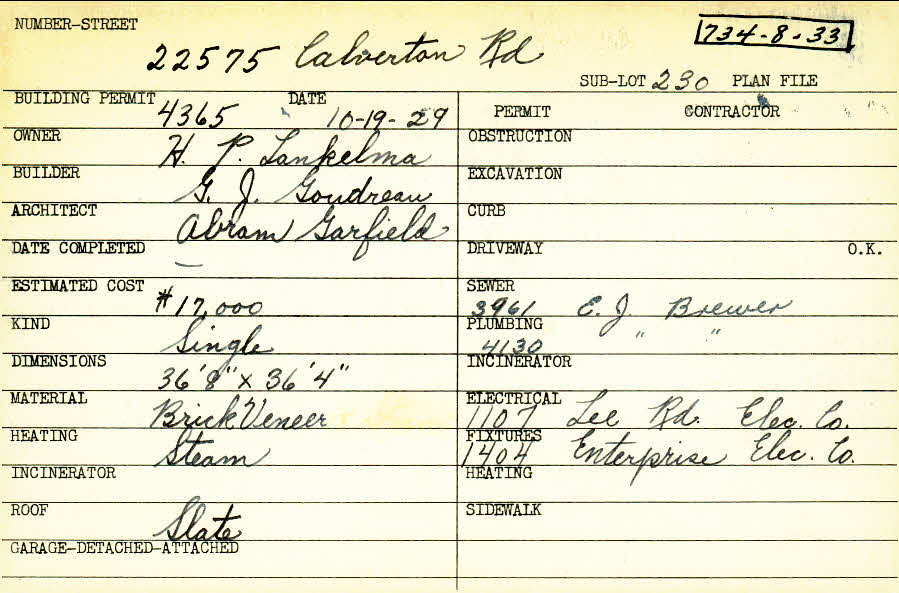 NUMBER-STREET
734-8-33
22575 Calverton Rd
SUB-LOT 230 PLAN FILE
BUILDING PERMIT 4365 DATE 10-19-29
OWNER H. P. Lankelma
BUILDER G. J. Goudreau
ARCHITECT Abram Garfield
DATE COMPLETED —
ESTIMATED COST $17,000
KIND Single
DIMENSIONS 36'8" x 36'4"
MATERIAL Brick Veneer
HEATING Steam
INCINERATOR
ROOF Slate
GARAGE-DETACHED-ATTACHED
PERMIT CONTRACTOR
OBSTRUCTION
EXCAVATION
CURB
DRIVEWAY O.K.
SEWER 3961 E. J. Brewer
PLUMBING 4130 " "
INCINERATOR
ELECTRICAL 1107 Lee Rd. Elec. Co.
FIXTURES 1404 Enterprise Elec. Co.
HEATING
SIDEWALK